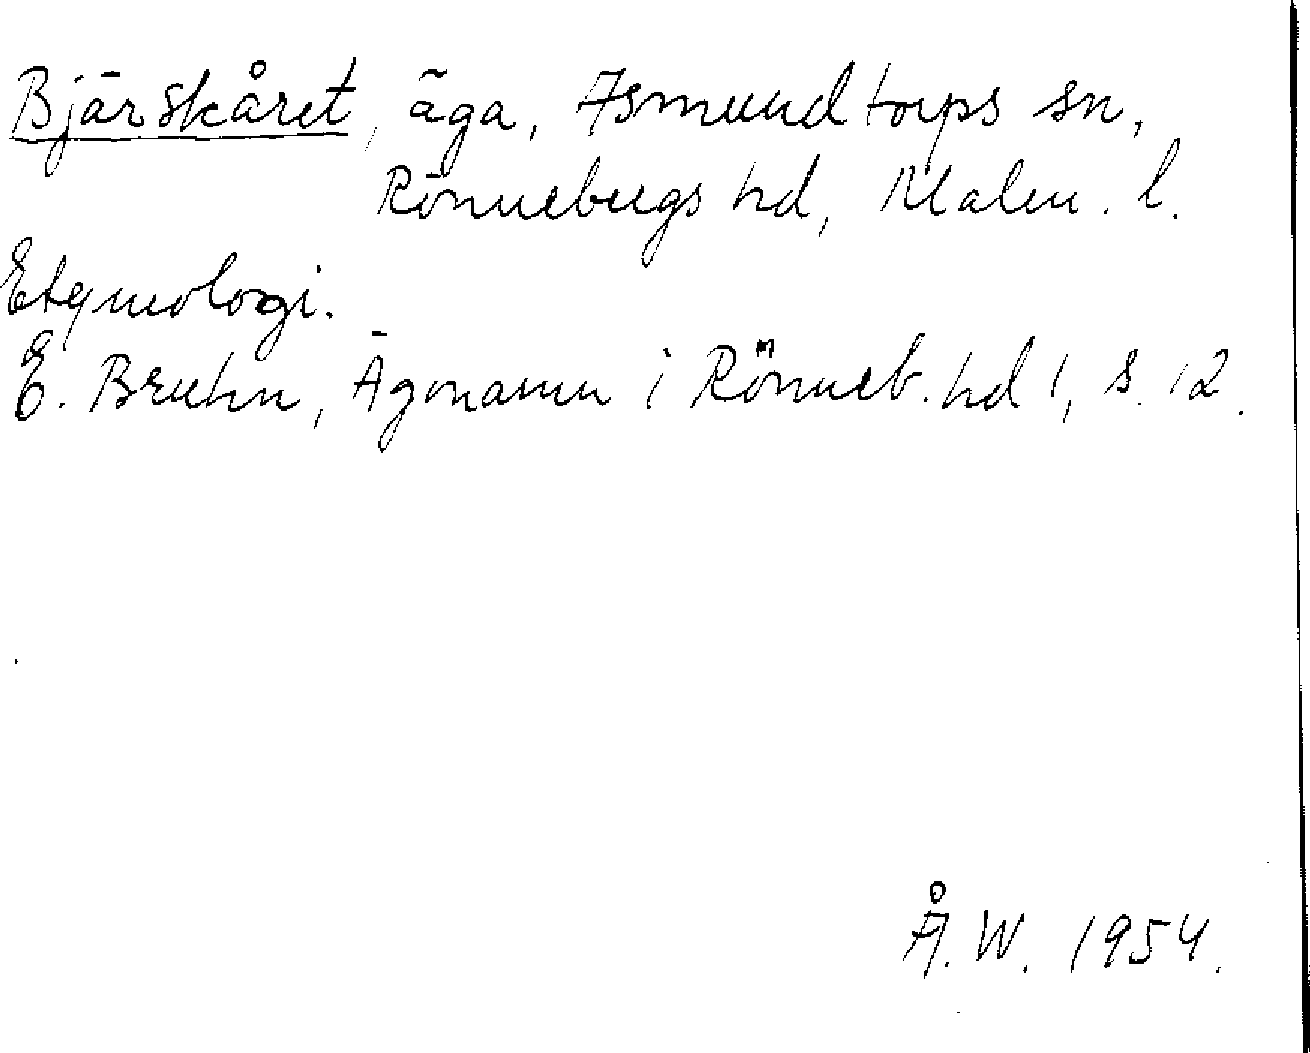 Bjärskåret, äga, Asmundtorps sn,
Rönnebergs hd, Malm. l.
Etymologi.
E. Bruhn, Ägonamn i Rönneb. hd 1, s. 12.
Å. W. 1954.